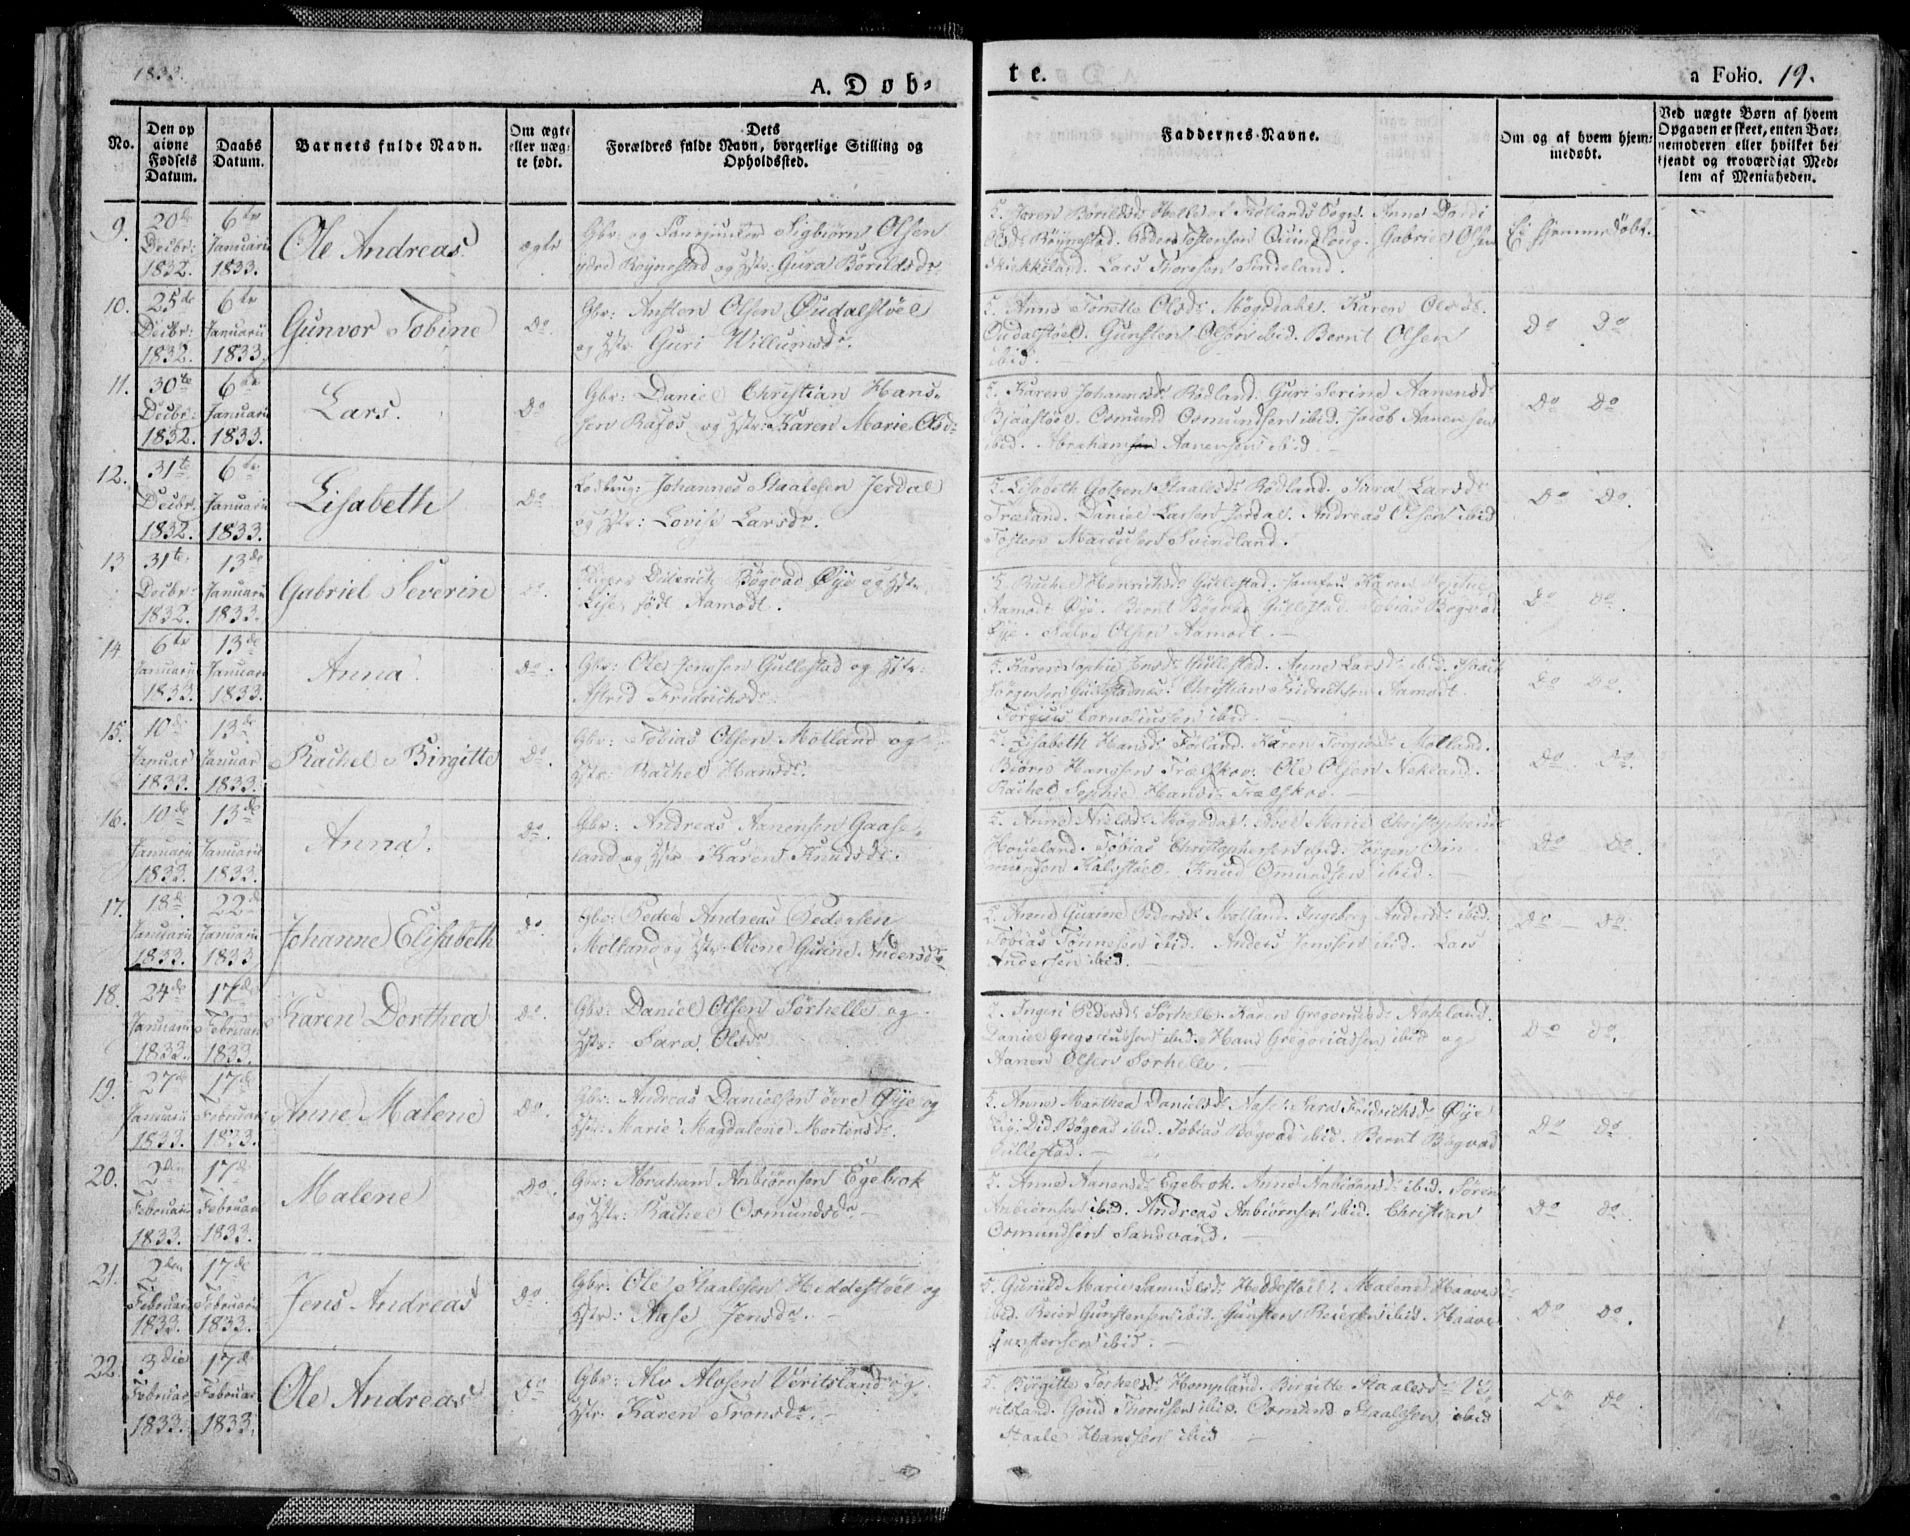 1833.
A. Døb-
te.
a Folio. 19.
No.
Den op
givne
Fødsels
Datum.
Daabs
Datum.
Barnets fulde Navn.
Om ægte
eller uæg-
te født.
Dets
Forældres fulde Navn, borgerlige Stilling og
Opholdssted.
Faddernes Navne.
Om og af hvem hjem-
medøbt.
Ved uægte Børn af hvem
Opgaven er skeet, enten Bar-
nemoderen eller hvilket be-
kjendt og troværdigt Med-
lem af Menigheden.
9.
20de
Decbr:
1832.
6te
Januarii
1833.
Ole Andreas
ægte
Gbr: og Sigbiørn Olsen
ydre Røynestad og Hstr: Gura Børildsdr
Helle af Anne
Røynestad. Gabriel Olsen
Lars
Ei hjemmedøbt.
10.
25de
Decbr:
1832.
6te
Januarii
1833.
Gunvor Tobine
Do
Gbr: Austen Olsen Øudalstøel
og Hstr: Guri Willumsdr.
5. Anne Tonette Olsdr Møgedahl. Karen Olsdr
Øudalstøel. Gunsten Olsen ibid. Bernt Olsen
ibid.
Do Do
11.
30te
Decbr:
1832.
6te
Januarii
1833.
Lars.
Do
Gbr: Daniel Christian Hans-
sen Røsos og Hstr: Karen Marie Olsdr
5. Karen Johannesdr Rødland. Guri Serine Aanensdr
Bjaastøel. Osmund Osmundsen ibid. Jacob Aanensen
ibid. Abraham Aanensen ibid.
Do Do
12.
31te
Decbr.
1832.
6te
Januarii
1833.
Lisabeth
Do
Johannes Staalesen Jerdal
og Hstr: Lovise Larsdr.
5. Lisabeth Staalesdr Rødland. Sara Larsdr
Træland. Daniel Larsen Jerdal. Andreas Olsen ibid
Tosten Svindland.
Do Do
13
31te
Decbr:
1832.
13de
Januarii
1833.
Gabriel Severin
Do
Diderich Bøgvad Øye og Hstr:
Lise, født Aamodt.
5. Rachel Henrichsdr Gullestad. Jomfru Karen Sophie
Aamodt Øye. Bernt Bøgvad Gullestad. Tobias Bøgvad
Øye. Salve Olsen Aamodt.
Do Do.
14
6te
Januarii
1833.
13de
Januarii
1833.
Anna
Do.
Gbr: Ole Jensen Gullestad og Hstr:
Astrid Fridrichsdr
5. Karen Sophie Jensdr Gullestad. Anne Larsdr ibid. Isaach
Jørgensen Christian Fridrichsen Aamodt.
Torgius Corneliussen ibid.
Do Do.
15.
10de
Januar
1833.
13de
Januar
1833.
Rachel Birgitte
Do.
Gbr: Tobias Olsen Molland og
Hstr: Rachel Hansdr.
5. Lisabeth Hansdr Førland. Karen Molland.
Biørn Hanssen Trælskov. Ole Olsen Nekland.
Rachel Sophie Hansdr Trælskov.
Do Do.
16.
10de
Januarii
1833.
13de
Januarii
1833.
Anna.
Do.
Gbr: Andreas Aanensen Gaase-
land og Hstr Karen Knudsdr.
5. Anne Møgedal. Marie
Houeland. Tobias Christophersen ibid. Om-
mundsen Kalvstøel. Knud Omundsen ibid.
Do Do.
17.
18de
Januarii
1833.
22de
Januarii
1833
Johanne Elisabeth
Do.
Gbr: Peder Andreas Pedersen
Molland og Hstr Olene Gurine Andersdr
5. Anne Gurine Pedersdr Molland. Ingeborg Andersdr ibid.
Tobias Tønnesen ibid. Anders Jensen ibid. Lars
Andersen ibid.
Do Do.
18.
24de
Januarii
1833.
17de
Februarii
1833.
Karen Dorthea
Do.
Gbr: Daniel Olsen Sørhelle og
Hstr: Sara Olsdr
5. Ingeri Pedersdr Sørhelle. Karen Gregoriusdr
Daniel Gregoriussen ibid. Hans Gregoriussen ibid og
Aanen Olsen Sørhelle.
Do Do.
19.
27de
Januarii
1833.
17de
Februar
1833.
Anne Malene
Do.
Gbr: Andreas Danielsen øvre Øye og
Hstr: Marie Magdalene Mortensdr
5. Anne Marthea Danielsdr Sara Fridrichsdr Øye
Did Bøgvad ibid. Tobias Bøgvad ibid. Bernt Bøgvad
Gullestad.
Do Do.
20.
2den
Februarii
1833.
17de
Februarii
1833.
Malene
Do.
Gbr: Abraham Anbiørnsen Egebrok
og Hstr: Rachel Osmundsdr.
5. Anne Aanensdr Egebrok. Anne Anbiørnsdr ibid. Søren
Anbiørnsen ibid. Andreas Anbiørnsen ibid. Christian
Osmundsen Sandvand.
Do Do.
21.
2den
Februarii
1833.
17de
Februarii
1833.
Jens Andreas
Do.
Gbr. Ole Staalesen Heddestøel og
Hstr: Aase Jensdr.
5. Gunild Marie Samuelsdr Heddestøel. Malene
ibid. Reier Gunstensen ibid. Gunsten Reiersen ibid. Haave
Gunstensen ibid.
Do Do.
22.
3die
Februar
1833.
17de
Februar
1833.
Ole Andreas
Do
Gbr: Alv Alvsen Veritsland og
Hstr: Karen Tronsdr.
5. Birgitte Torkelsdr Hompland. Birgitte Staalesdr Ve-
ritsland. ibid. Osmund Staalesen ibid
Staale Hanssen ibid
Do Do.